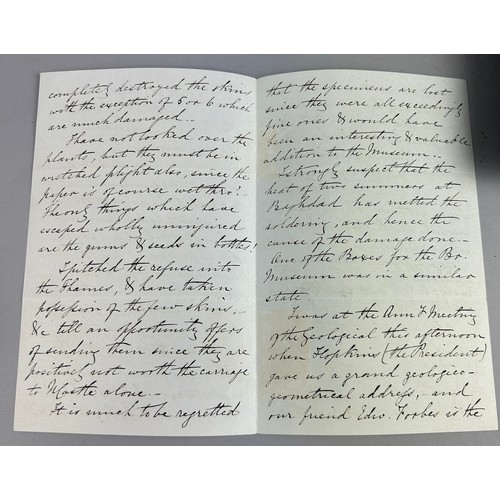 completely destroyed the skins
with the exception of 5 or 6 which
are much damaged..
I have not looked over the
plants, but they must be in
wretched plight also, since the
paper is of course wet thro'!-
The only things which have
escaped wholly uninjured
are the gums & seeds in bottles!
I pitched the refuse into
the Thames, & have taken
possession of the few skins,..
&c till an opportunity offers
of sending them since they are
positively not worth the carriage
to NCastle alone--
It is much to be regretted
that the specimens are lost
since they were all exceedingly
fine ones & would have
been an interesting & valuable
addition to the Museum..
I strongly suspect that the
heat of two summers at
Baghdad has melted the
soldering, and hence the
cause of the damage done--
One of the Boxes for the Br.
Museum was in a similar
state.
I was at the Annl Meeting
of the Geological this afternoon
when Hopkins (the President)
gave us a grand geologico-
geometrical address,- and
our friend Edw. Forbes is the